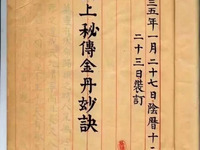 三五年一月二十七日陰曆十二
二十三日裝訂
上秘傳金丹妙訣